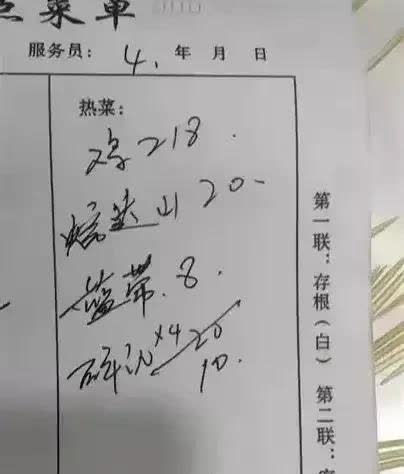 点菜单
服务员： 4. 年 月 日
热菜：
鸡 218.
山 20-
蓝带. 8.
×4 20
10.
第一联：存根（白） 第二联：